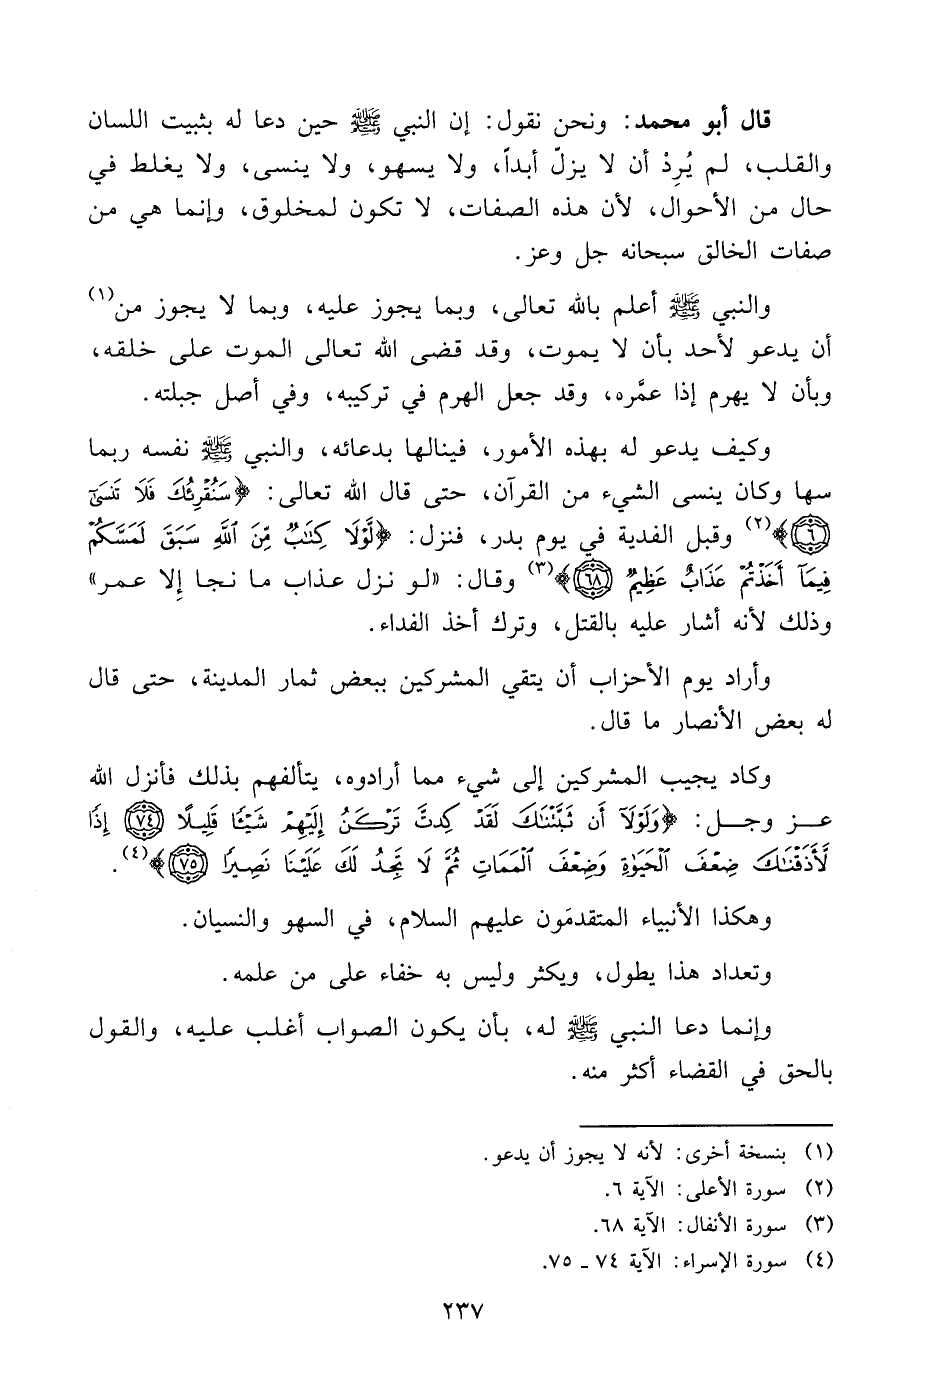 قال أبو محمد: ونحن نقول: إن النبي ﷺ حين دعا له بثبيت اللسان
والقلب، لم يُرِدْ أن لا يزلّ أبداً، ولا يسهو، ولا ينسى، ولا يغلط في
حال من الأحوال، لأن هذه الصفات، لا تكون لمخلوق، وإنما هي من
صفات الخالق سبحانه جل وعز.
والنبي ﷺ أعلم بالله تعالى، وبما يجوز عليه، وبما لا يجوز من(١)
أن يدعو لأحد بأن لا يموت، وقد قضى الله تعالى الموت على خلقه،
وبأن لا يهرم إذا عمَّره، وقد جعل الهرم في تركيبه، وفي أصل جبلته.
وكيف يدعو له بهذه الأمور، فينالها بدعائه، والنبي ﷺ نفسه ربما
سها وكان ينسى الشيء من القرآن، حتى قال الله تعالى: ﴿سَنُقْرِئُكَ فَلَا تَنسَىٰٓ
٦﴾(٢) وقبل الفدية في يوم بدر، فنزل: ﴿لَّوْلَا كِتَٰبٌ مِّنَ ٱللَّهِ سَبَقَ لَمَسَّكُمْ
فِيمَآ أَخَذْتُمْ عَذَابٌ عَظِيمٌ ٦٨﴾(٣) وقال: «لو نزل عذاب ما نجا إِلا عمر»
وذلك لأنه أشار عليه بالقتل، وترك أخذ الفداء.
وأراد يوم الأحزاب أن يتقي المشركين ببعض ثمار المدينة، حتى قال
له بعض الأنصار ما قال.
وكاد يجيب المشركين إلى شيء مما أرادوه، يتألفهم بذلك فأنزل الله
عز وجل: ﴿وَلَوْلَآ أَن ثَبَّتْنَٰكَ لَقَدْ كِدتَّ تَرْكَنُ إِلَيْهِمْ شَيْـًٔا قَلِيلًا ٧٤ إِذًا
لَّأَذَقْنَٰكَ ضِعْفَ ٱلْحَيَوٰةِ وَضِعْفَ ٱلْمَمَاتِ ثُمَّ لَا تَجِدُ لَكَ عَلَيْنَا نَصِيرًا ٧٥﴾(٤).
وهكذا الأنبياء المتقدمَون عليهم السلام، في السهو والنسيان.
وتعداد هذا يطول، ويكثر وليس به خفاء على من علمه.
وإنما دعا النبي ﷺ له، بأن يكون الصواب أغلب عليه، والقول
بالحق في القضاء أكثر منه.
(١) بنسخة أخرى: لأنه لا يجوز أن يدعو.
(٢) سورة الأعلى: الآية ٦.
(٣) سورة الأنفال: الآية ٦٨.
(٤) سورة الإسراء: الآية ٧٤ ـ ٧٥.
٢٣٧